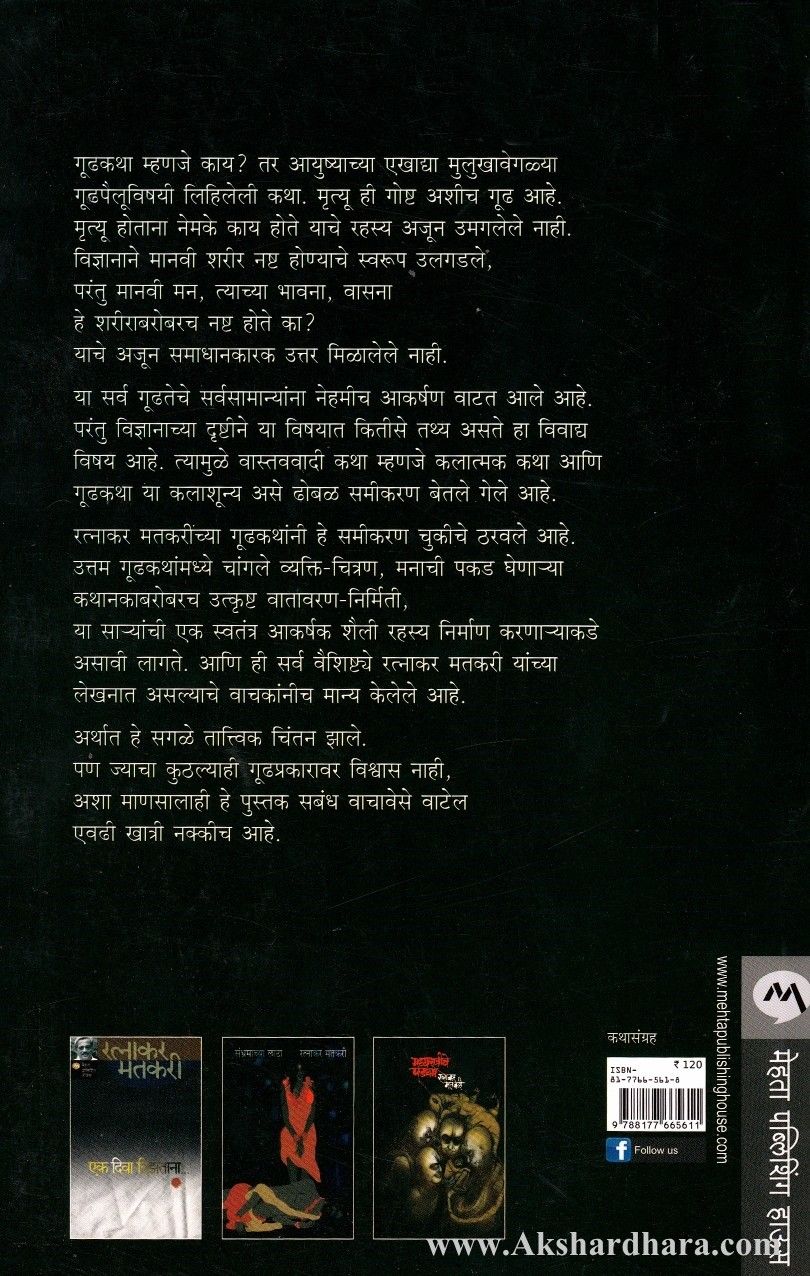 गूढकथा म्हणजे काय? तर आयुष्याच्या एखाद्या मुलुखावेगळ्या
गूढपैलूविषयी लिहिलेली कथा. मृत्यू ही गोष्ट अशीच गूढ आहे.
मृत्यू होताना नेमके काय होते याचे रहस्य अजून उमगलेले नाही.
विज्ञानाने मानवी शरीर नष्ट होण्याचे स्वरूप उलगडले,
परंतु मानवी मन, त्याच्या भावना, वासना
हे शरीराबरोबरच नष्ट होते का?
याचे अजून समाधानकारक उत्तर मिळालेले नाही.
या सर्व गूढतेचे सर्वसामान्यांना नेहमीच आकर्षण वाटत आले आहे.
परंतु विज्ञानाच्या दृष्टीने या विषयात कितीसे तथ्य असते हा विवाद्य
विषय आहे. त्यामुळे वास्तववादी कथा म्हणजे कलात्मक कथा आणि
गूढकथा या कलाशून्य असे ढोबळ समीकरण बेतले गेले आहे.
रत्नाकर मतकरींच्या गूढकथांनी हे समीकरण चुकीचे ठरवले आहे.
उत्तम गूढकथांमध्ये चांगले व्यक्ति-चित्रण, मनाची पकड घेणाऱ्या
कथानकाबरोबरच उत्कृष्ट वातावरण-निर्मिती,
या साऱ्यांची एक स्वतंत्र आकर्षक शैली रहस्य निर्माण करणाऱ्याकडे
असावी लागते. आणि ही सर्व वैशिष्ट्ये रत्नाकर मतकरी यांच्या
लेखनात असल्याचे वाचकांनीच मान्य केलेले आहे.
अर्थात हे सगळे तात्त्विक चिंतन झाले.
पण ज्याचा कुठल्याही गूढप्रकारावर विश्वास नाही,
अशा माणसालाही हे पुस्तक सबंध वाचावेसे वाटेल
एवढी खात्री नक्कीच आहे.
रत्नाकर
मतकरी
एक दिवा
संभ्रमाच्या लाटा रत्नाकर मतकरी
कथासंग्रह
₹ 120
ISBN-
81-7766-561-8
9 788177 665611
Follow us
www.mehtapublishinghouse.com
मेहता पब्लिशिंग हाऊस
www.Akshardhara.com